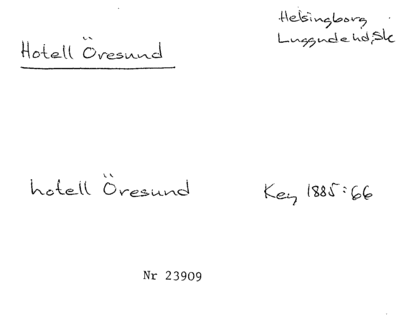 Helsingborg
Hotell Öresund
Luggude hd, Sk
hotell Öresund
Key 1885:66
Nr 23909